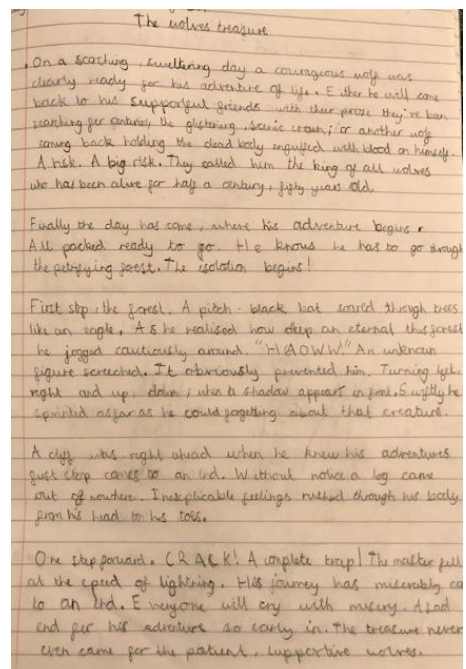 The wolves treasure
On a scaching, sweltering day a courageous wolf was
clearly ready for his adventure of life. Either he will come
back to his supportful friends with their prize they've ban
searching for centuries, the glistening, scenic crown; or another wolf
coming back holding the dead body engulfed with blood on himself.
A risk. A big risk. They called him the king of all wolves
who has been alive for half a century, fifty years old.
Finally the day has come, where his adventure begins.
All packed ready to go. He knows he has to go through
the petrifying forest. The isolation begins!
First stop, the forest. A pitch-black bat soared through trees
like an eagle. As he realised how deep an eternal this forest
he jogged cautiously around. "HAOWW." An unknown
figure screeched. It obviously prevented him. Turning left,
right and up, down; when a shadow appears in front. Swiftly he
sprinted as far as he could forgetting about that creature.
A cliff was right ahead when he knew his adventures
just stop comes to an end. Without notice a log came
out of nowhere. Inexplicable feelings rushed through his body
from his head to his toes.
One step forward. CRACK! A complete trap! The master fell
at the speed of lightning. His journey has miserably co
to an end. Everyone will cry with misery. A sad
end for his adventure so early in. The treasure never
even came for the patient, supportive wolves.